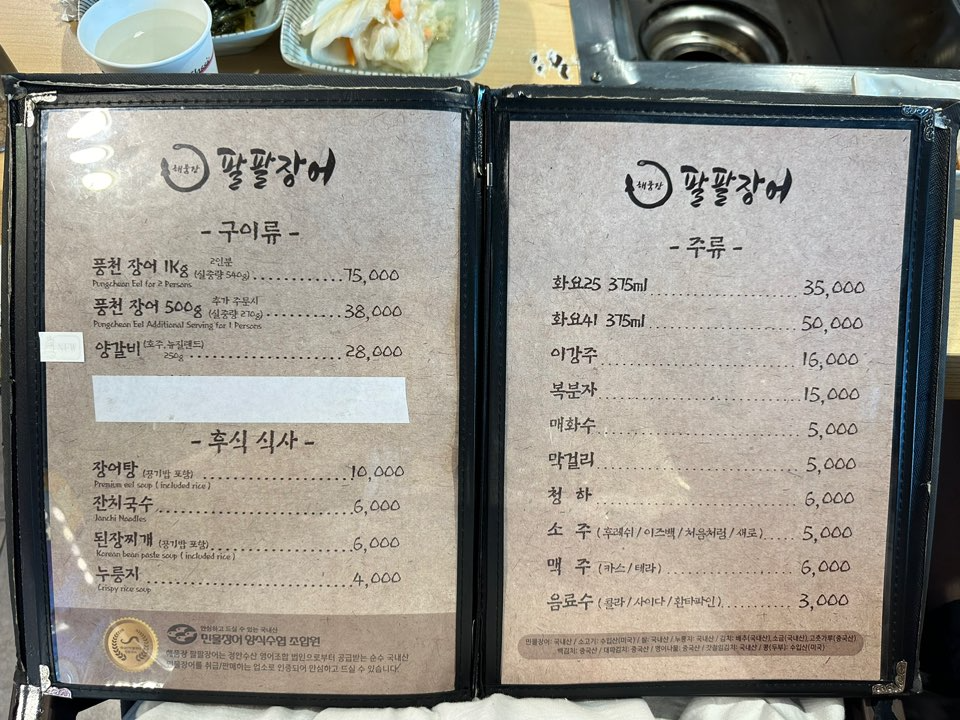 해풍장
팔팔장어
- 구이류 -
풍천 장어 1Kg 2인분 (실중량 540g) 75,000
Pungcheon Eel for 2 Persons
풍천 장어 500g 추가 주문시 (실중량 270g) 38,000
Pungcheon Eel Additional Serving for 1 Persons
양갈비 (호주,뉴질랜드) 250g 28,000
- 후식 식사 -
장어탕 (공기밥 포함) 10,000
Premium eel soup ( included rice )
잔치국수 6,000
Janchi Noodles
된장찌개 (공기밥 포함) 6,000
Korean bean paste soup ( included rice )
누룽지 4,000
Crispy rice soup
안심하고 드실 수 있는 국내산
민물장어 양식수협 조합원
해풍장 팔팔장어는 정안수산 영어조합 법인으로부터 공급받는 순수 국내산
민물장어를 취급/판매하는 업소로 인증되어 안심하고 드실 수 있습니다
해풍장
팔팔장어
- 주류 -
화요25 375ml 35,000
화요41 375ml 50,000
이강주 16,000
복분자 15,000
매화수 5,000
막걸리 5,000
청 하 6,000
소 주 ( 후레쉬 / 이즈백 / 처음처럼 / 새로 ) 5,000
맥 주 ( 카스 / 테라 ) 6,000
음료수 ( 콜라 / 사이다 / 환타파인 ) 3,000
민물장어: 국내산 / 소고기: 수입산(미국) / 쌀: 국내산 / 누룽지: 국내산 / 김치: 배추(국내산),소금(국내산),고춧가루(중국산)
백김치: 중국산 / 대파김치: 중국산 / 명이나물: 중국산 / 갓절임김치: 국내산 / 콩(두부): 수입산(미국)